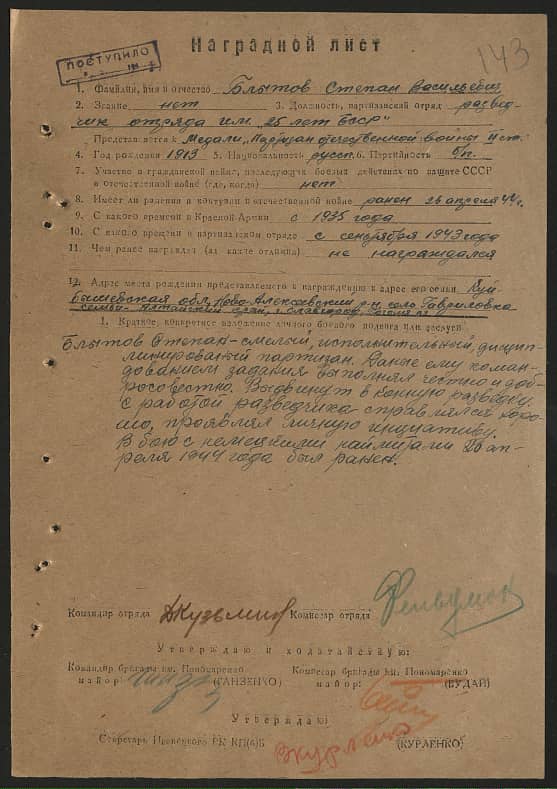 143
ПОСТУПИЛО
Наградной лист
1. Фамилия, имя и отчество Блытов Степан Васильевич
2. Звание нет 3. Должность, партизанский отряд развед-
чик отряда им. "25 лет БССР"
Представляется к Медали "Партизан отечественной войны II ст.
4. Год рождения 1913 5. Национальность русск. 6. Партийность б/п.
7. Участие в гражданской войне, последующих боевых действиях по защите СССР
и отечественной войне (где, когда) нет
8. Имеет ли ранения и контузии в отечественной войне ранен 26 апреля 44 г.
9. С какого времени в Красной Армии с 1935 года
10. С какого времени в партизанском отряде с сентября 1943 года
11. Чем ранее награжден (за какие отличия) не награждался
12. Адрес места рождения представляемого к награждению и адрес его семьи Куй-
бышевская обл, Ново-Алексеевский р-н, село Гавриловка
семья-Алтайский край, г. Славгород,
1. Краткое, конкретное изложение личного боевого подвига или заслуги
Блытов Степан-смелый, исполнительный, дисцип-
линированый партизан. Даные ему коман-
дованием задания выполнял честно и доб-
росовестно. Выдвинут в конную разведку
с работой разведчика справлялся хоро-
шо, проявлял личную инициативу.
В бою с немецкими наймитами 26 ап-
реля 1944 года был ранен.
Командир отряда ДКузьмин Комиссар отряда
Утверждаю и ходатайствую:
Командир бригады им. Пономаренко Комиссар бригады им. Пономаренко
майор (ГАНЗЕНКО) майор: (БУДАЙ)
Утверждаю:
Секретарь Ивенецкого РК КП(б)Б Журленко (КУРЛЕНКО)